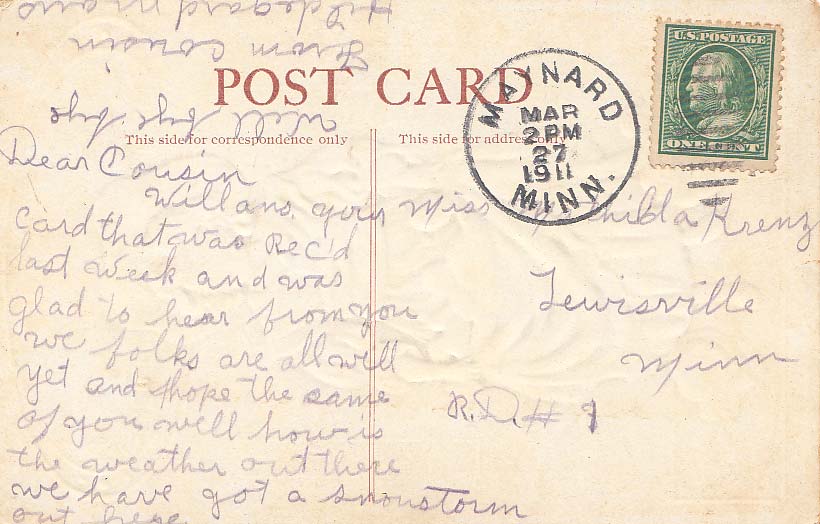 POST CARD
This side for correspondence only
This side for address only
U.S. POSTAGE
ONE CENT
MAYNARD
MAR
27
2 PM
1911
MINN.
Dear Cousin
Will ans. your
card that was Rec'd
last week and was
glad to hear from you
we folks are all well
yet and hope the same
of you well how is
the weather out there
we have got a snowstorm
out here
well bye bye
from cousin
Hildegard
Miss Krenz
Lewisville
Minn
R.D. # 1